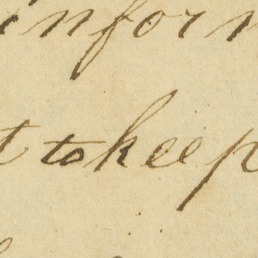 infor
t to keep